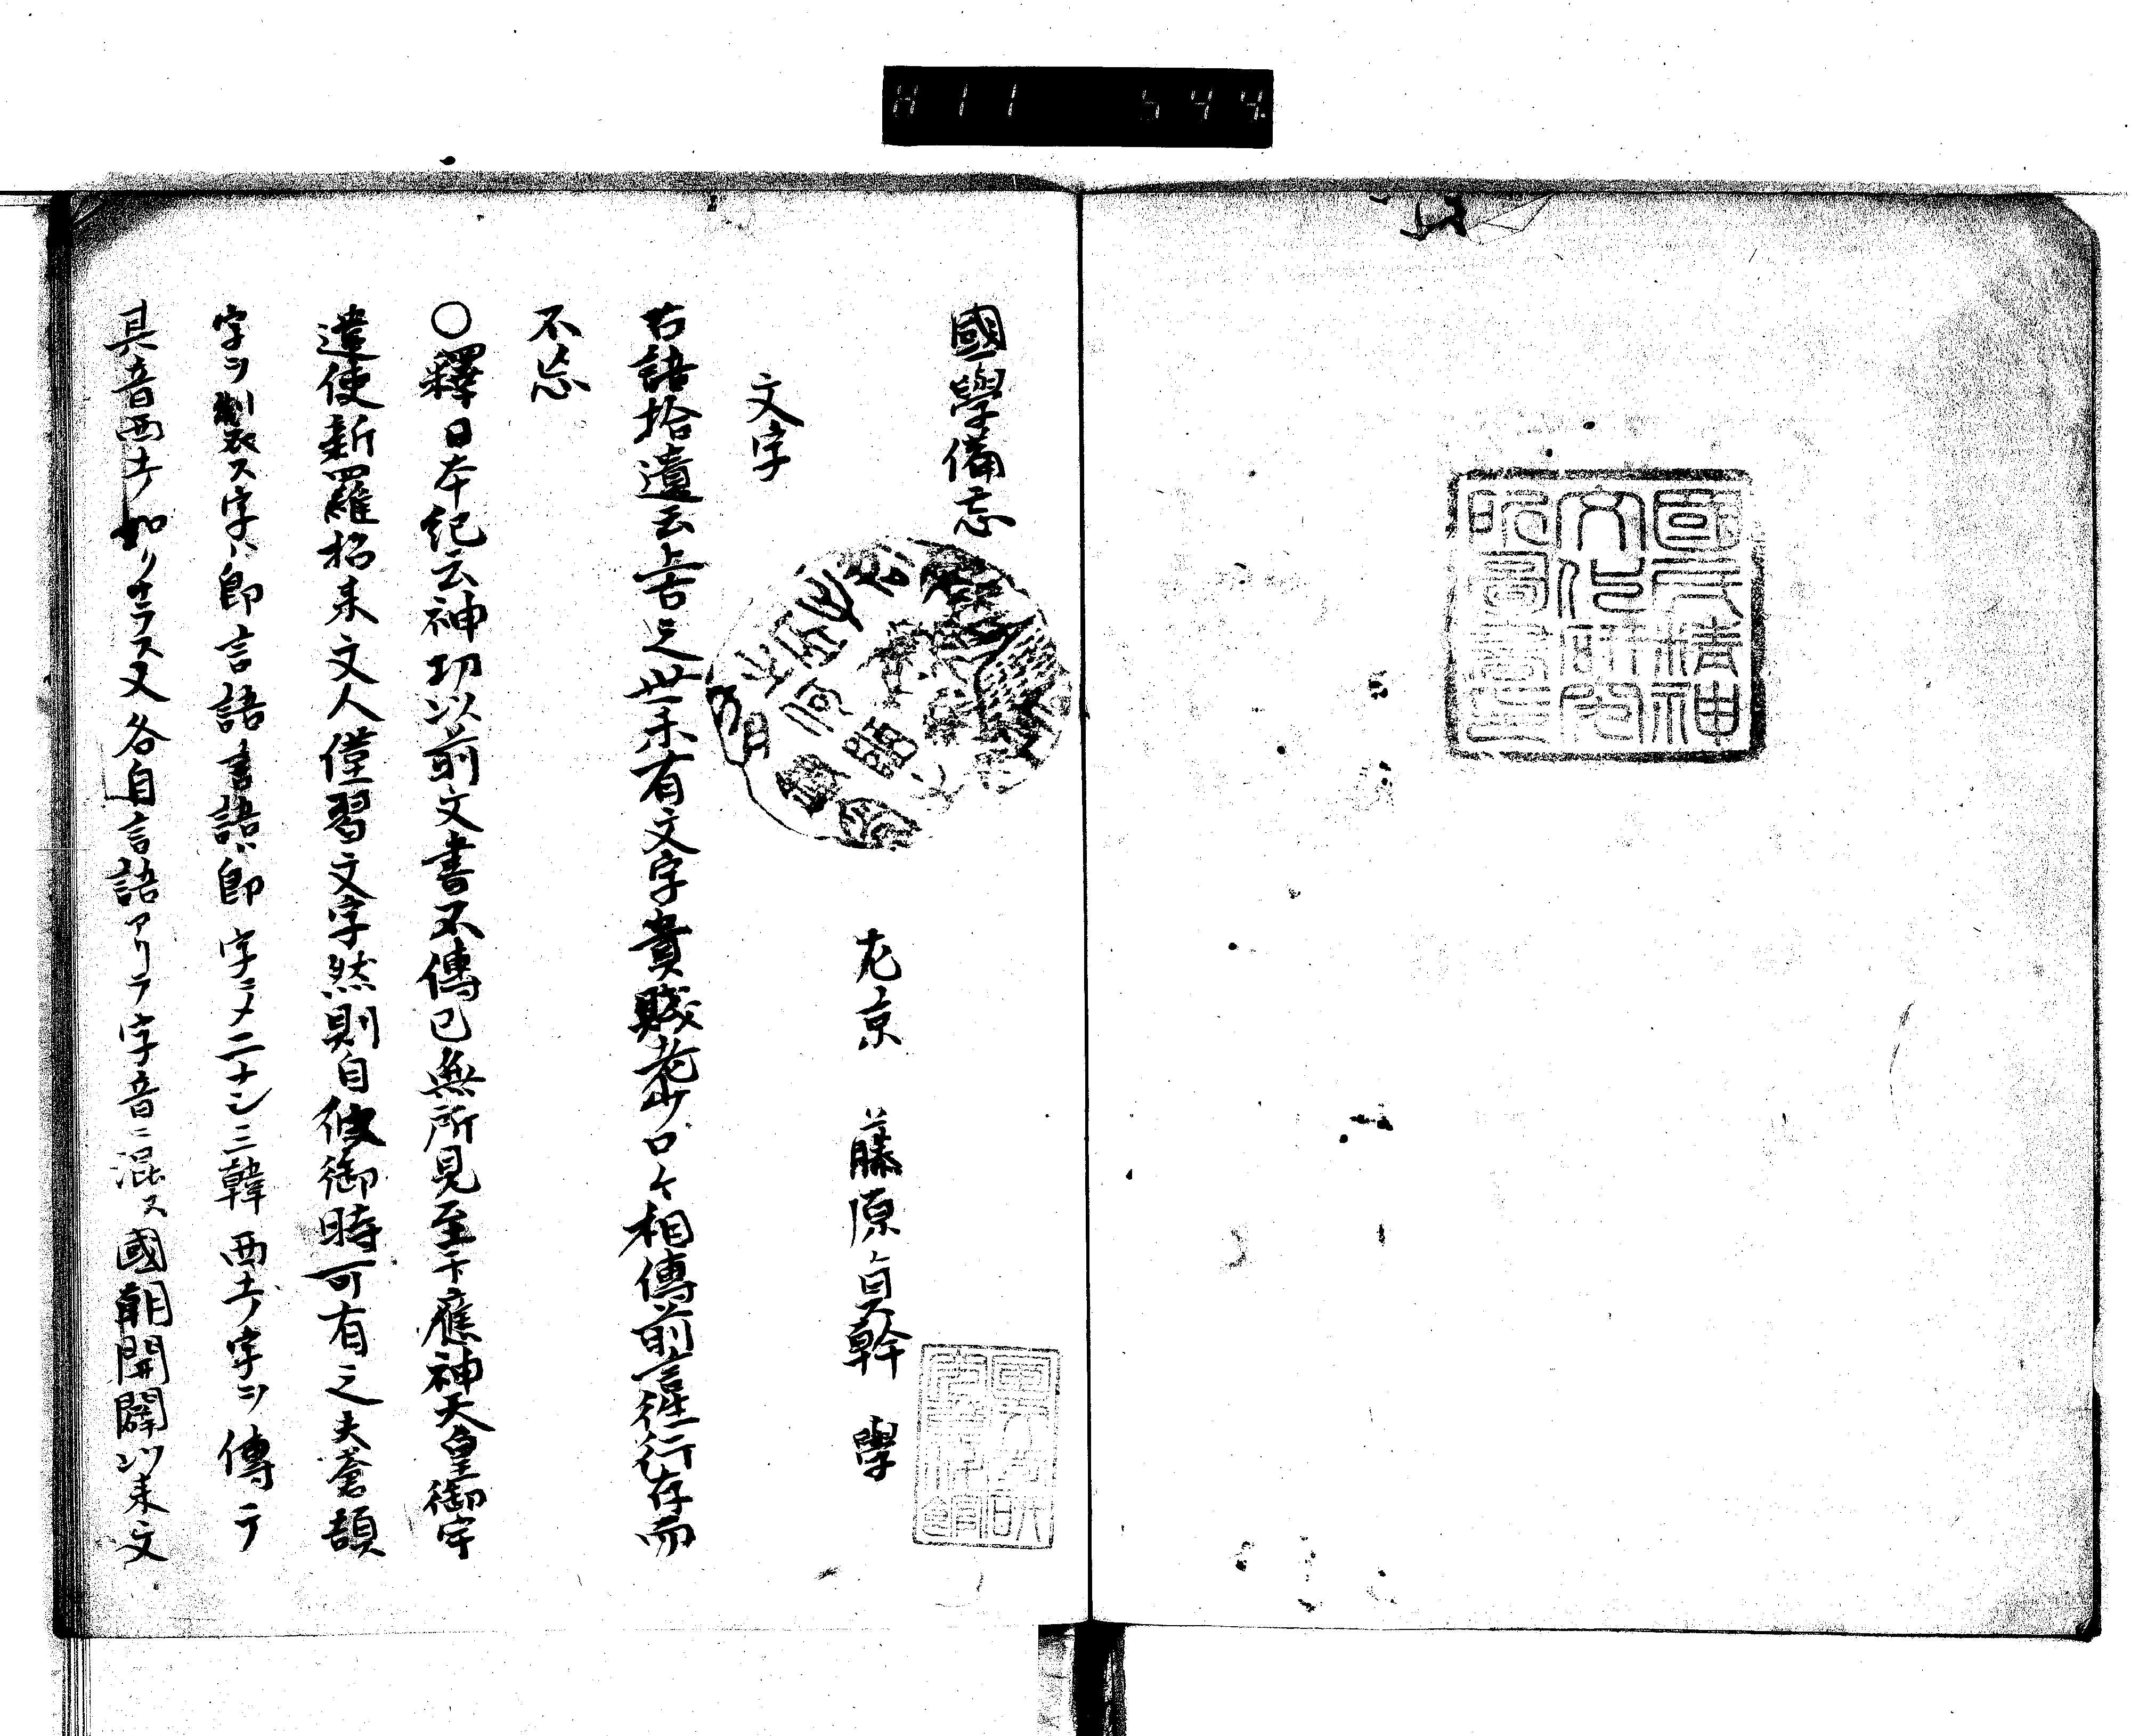 H11 544.
國民精神
文化研究
所圖書之
國學備忘
左京 藤原貞幹 學
文字
古語拾遺云上古之世未有文字貴賤老少口々相傳前言往行存而
不忘
〇釋日本紀云神功以前文書不傳已無所見至于應神天皇御宇
遣使新羅招来文人僅習文字然則自彼御時可有之夫蒼頡
字ヲ製ス字ハ即言語言語ハ即字ニメ二ナシ三韓西土ノ字ヲ傳テ
其音西土ノ如クナラス又各自言語アリテ字音ニ混ス國朝開闢以来文